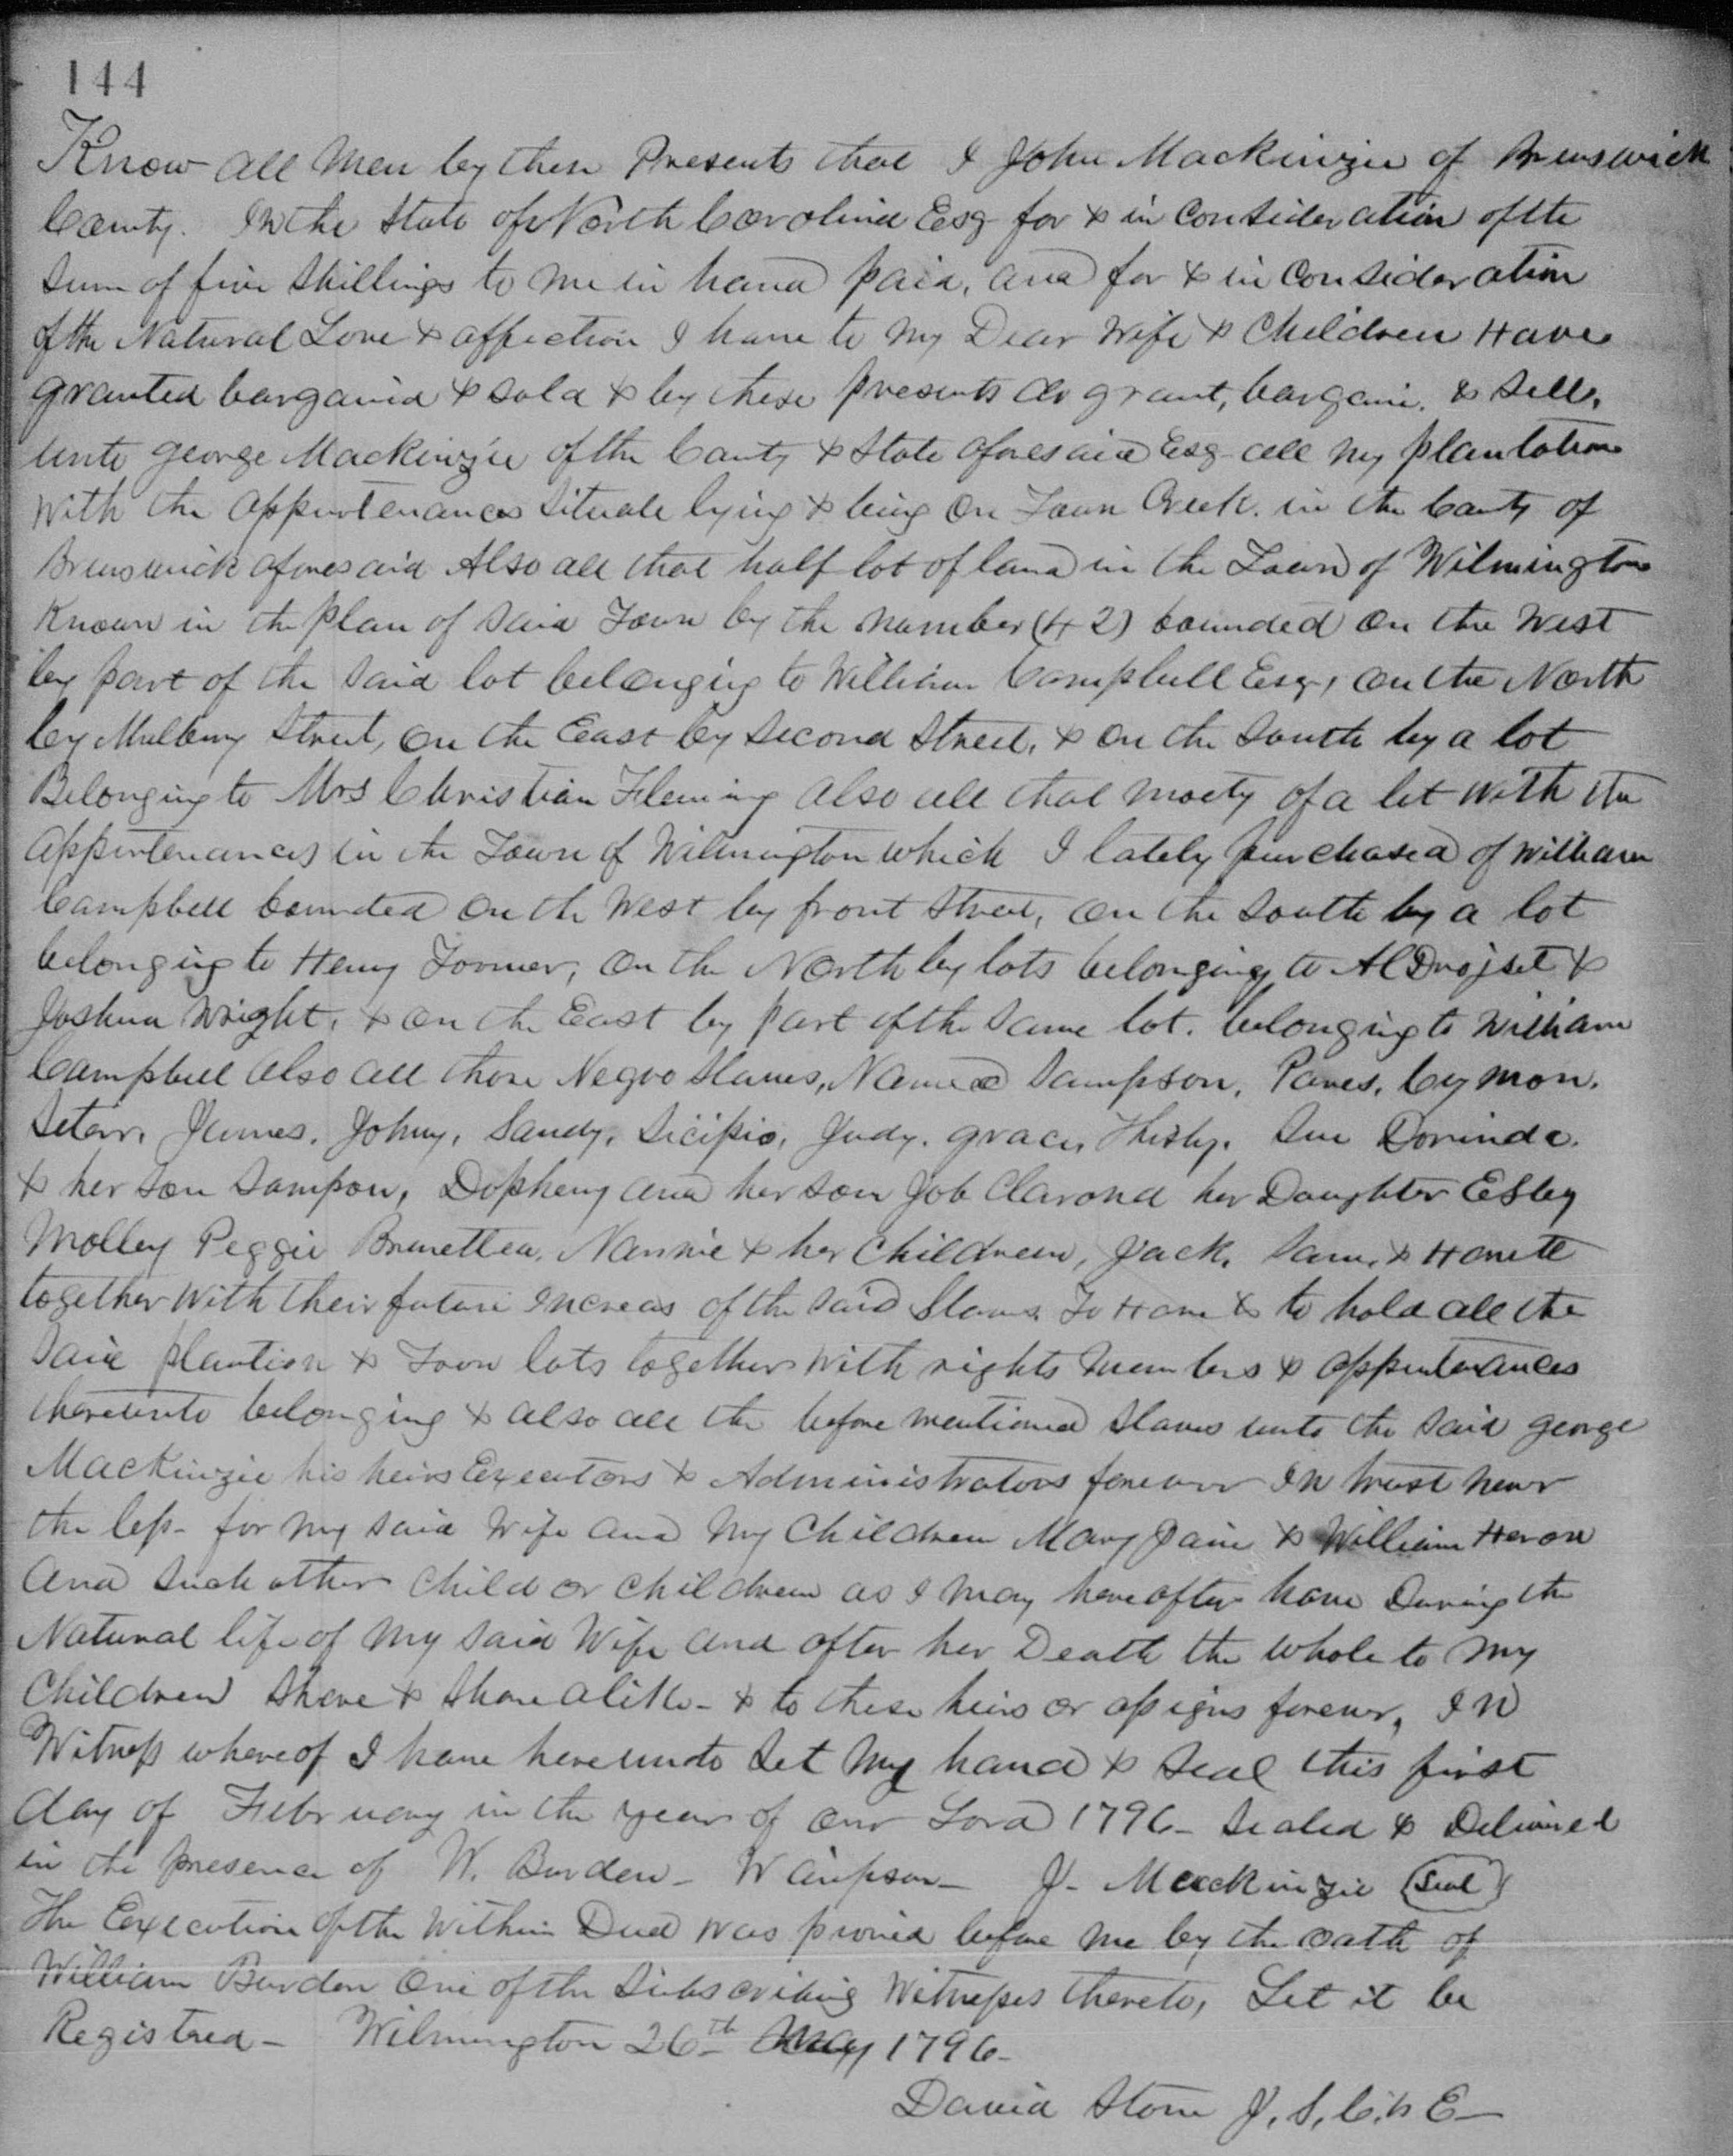 144
Know all Men by these Presents that I John Mackinzie of Brunswick
County. In the State of North Carolina Esq for & in Consideration of the
Sum of five Shillings to me in hand paid, and for & in Consideration
of the Natural Love & affection I have to my Dear Wife & Children Have
granted bargained & sold & by these presents do grant, bargain, & Sell,
unto george Mackinzie of the County & State aforesaid Esq all my plantation
With the appurtenances Situate lying & being on Town Creek. in the County of
Brunswick aforesaid Also all that half lot of land in the Town of Wilmington
Known in the plan of said Town by the number (42) bounded on the West
by part of the said lot belonging to William Campbell Esq, on the North
by Mulberry Street, on the East by Second Street, & on the South by a lot
Belonging to Mrs Christian Fleming also all that moety of a lot with the
appurtenances in the Town of Wilmington which I lately purchased of William
Campbell bounded on the West by front Street, on the South by a lot
belonging to Henry Toomer, on the North by lots belonging to &
Joshua Wright, & on the East by part of the Same lot. belonging to William
Campbell also all those Negro Slaves, Named Sampson, Cymon.
James. Johny, Sandy, Judy. grace, Sue Dorinda.
& her son Sampson, and her son Job her Daughter
Molley Peggie Nannie & her Childreen, Jack, Sam, &
together With their future Increas of the said Slaves. To Have & to hold all the
Said plantion & Town lots together with rights members & appurtenances
thereunto belonging & also all the before mentioned Slaves unto the said george
Mackinzie his heirs Executors & Administrators forever In trust never
the less - for my said Wife and my Children Mary Jain & William Heron
And Such other Child or Children as I may hereafter have During the
Natural life of my said Wife and after her Death the Whole to my
Children Share & Share alike - & to these heirs or assigns forever, In
Witness whereof I have hereunto Set my hand & Seal this first
day of February in the year of our Lord 1796 - Sealed & Delivered
in the presence of W. Burden - J - Mackinzie (Seal)
The Execution of the Within Deed was proved before me by the oath of
William Burden one of the Subscribing Witnesses thereto, Let it be
Registred - Wilmington 26th May 1796 -
David Stone J. S.